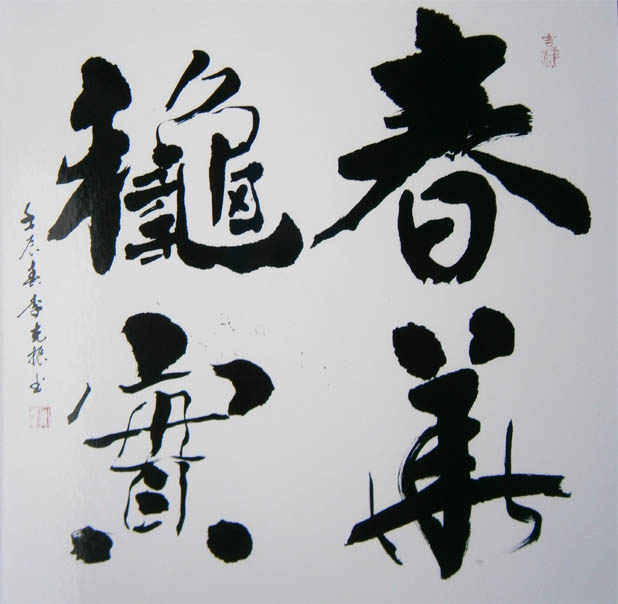 春華
龝實
壬辰春李克振书